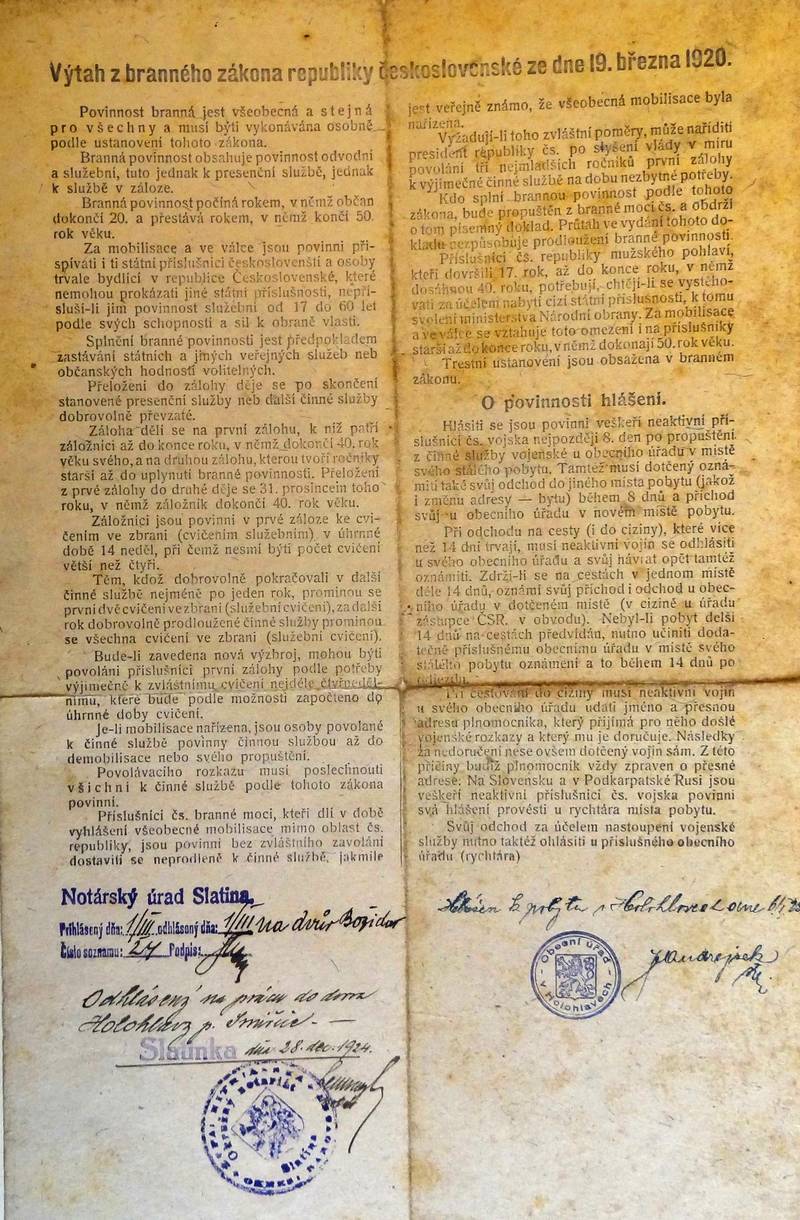 Výtah z branného zákona republiky československé ze dne 19. března 1920.
Povinnost branná jest všeobecná a stejná
pro všechny a musí býti vykonávána osobně
podle ustanovení tohoto zákona.
Branná povinnost obsahuje povinnost odvodní
a služební, tuto jednak k presenční službě, jednak
k službě v záloze.
Branná povinnost počíná rokem, v němž občan
dokončí 20. a přestává rokem, v němž končí 50.
rok věku.
Za mobilisace a ve válce jsou povinni při-
spívati i ti státní příslušníci českoslovenští a osoby
trvale bydlící v republice Československé, které
nemohou prokázati jiné státní příslušnosti, nepří-
sluší-li jim povinnost služební od 17 do 60 let
podle svých schopností a sil k obraně vlasti.
Splnění branné povinnosti jest předpokladem
zastávání státních a jiných veřejných služeb neb
občanských hodností volitelných.
Přeložení do zálohy děje se po skončení
stanovené presenční služby neb další činné služby
dobrovolně převzaté.
Záloha dělí se na první zálohu, k níž patří
záložníci až do konce roku, v němž dokončí 40. rok
věku svého, a na druhou zálohu, kterou tvoří ročníky
starší až do uplynutí branné povinnosti. Přeložení
z prvé zálohy do druhé děje se 31. prosincem toho
roku, v němž záložník dokončí 40. rok věku.
Záložníci jsou povinni v prvé záloze ke cvi-
čením ve zbrani (cvičením služebním) v úhrnné
době 14 neděl, při čemž nesmí býti počet cvičení
větší než čtyři.
Těm, kdož dobrovolně pokračovali v další
činné službě nejméně po jeden rok, prominou se
první dvě cvičení ve zbrani (služební cvičení), za další
rok dobrovolně prodloužené činné služby prominou
se všechna cvičení ve zbrani (služební cvičení).
Bude-li zavedena nová výzbroj, mohou býti
povoláni příslušníci první zálohy podle potřeby
výjimečně k zvláštnímu cvičení nejdéle čtyřneděl-
nímu, které bude podle možnosti započteno do
úhrnné doby cvičení.
Je-li mobilisace nařízena, jsou osoby povolané
k činné službě povinny činnou službou až do
demobilisace nebo svého propuštění.
Povolávacího rozkazu musí poslechnouti
všichni k činné službě podle tohoto zákona
povinní.
Příslušníci čs. branné moci, kteří dlí v době
vyhlášení všeobecné mobilisace mimo oblast čs.
republiky, jsou povinni bez zvláštního zavolání
dostaviti se neprodleně k činné službě, jakmile
jest veřejně známo, že všeobecná mobilisace byla
nařízena.
Vyžadují-li toho zvláštní poměry, může naříditi
president republiky čs. po slyšení vlády v míru
povolání tří nejmladších ročníků první zálohy
k výjimečné činné službě na dobu nezbytné potřeby.
Kdo splní brannou povinnost podle tohoto
zákona, bude propuštěn z branné moci čs. a obdrží
o tom písemný doklad. Průtah ve vydání tohoto do-
kladu nezpůsobuje prodloužení branné povinnosti.
Příslušníci čs. republiky mužského pohlaví,
kteří dovršili 17. rok, až do konce roku, v němž
dosáhnou 40. roku, potřebují, chtějí-li se vystěho-
vati za účelem nabytí cizí státní příslušnosti, k tomu
svolení ministerstva Národní obrany. Za mobilisace
a ve válce se vztahuje toto omezení i na příslušníky
starší až do konce roku, v němž dokonají 50. rok věku.
Trestní ustanovení jsou obsažena v branném
zákonu.
O povinnosti hlášení.
Hlásiti se jsou povinni veškeří neaktivní pří-
slušníci čs. vojska nejpozději 8. den po propuštění
z činné služby vojenské u obecního úřadu v místě
svého stálého pobytu. Tamtéž musí dotčený ozná-
miti také svůj odchod do jiného místa pobytu (jakož
i změnu adresy — bytu) během 8 dnů a příchod
svůj u obecního úřadu v novém místě pobytu.
Při odchodu na cesty (i do ciziny), které více
než 14 dní trvají, musí neaktivní vojín se odhlásiti
u svého obecního úřadu a svůj návrat opět tamtéž
oznámiti. Zdrží-li se na cestách v jednom místě
déle 14 dnů, oznámí svůj příchod i odchod u obec-
ního úřadu v dotčeném místě (v cizině u úřadu
zástupce ČSR. v obvodu). Nebyl-li pobyt delší
14 dnů na cestách předvídán, nutno učiniti doda-
tečně příslušnému obecnímu úřadu v místě svého
stálého pobytu oznámení a to během 14 dnů po
Při cestování do ciziny musí neaktivní vojín
u svého obecního úřadu udati jméno a přesnou
adresu plnomocníka, který přijímá pro něho došlé
vojenské rozkazy a který mu je doručuje. Následky
za nedoručení nese ovšem dotčený vojín sám. Z této
příčiny budiž plnomocník vždy zpraven o přesné
adrese. Na Slovensku a v Podkarpatské Rusi jsou
veškeří neaktivní příslušníci čs. vojska povinni
svá hlášení provésti u rychtáře místa pobytu.
Svůj odchod za účelem nastoupení vojenské
služby nutno taktéž ohlásiti u příslušného obecního
úřadu (rychtáře)
Notársky úrad Slatina,
Prihlásený dňa: 1/III. odhlásený dňa: 1/III na dvůr Božidar
Číslo soznamu: 27 Podpis:
Odhlásený na prácu do
Holohlavy p. Smiřice. —
Slatinka dňa 28. dec. 1924.
Obecní úřad
v Holohlavech